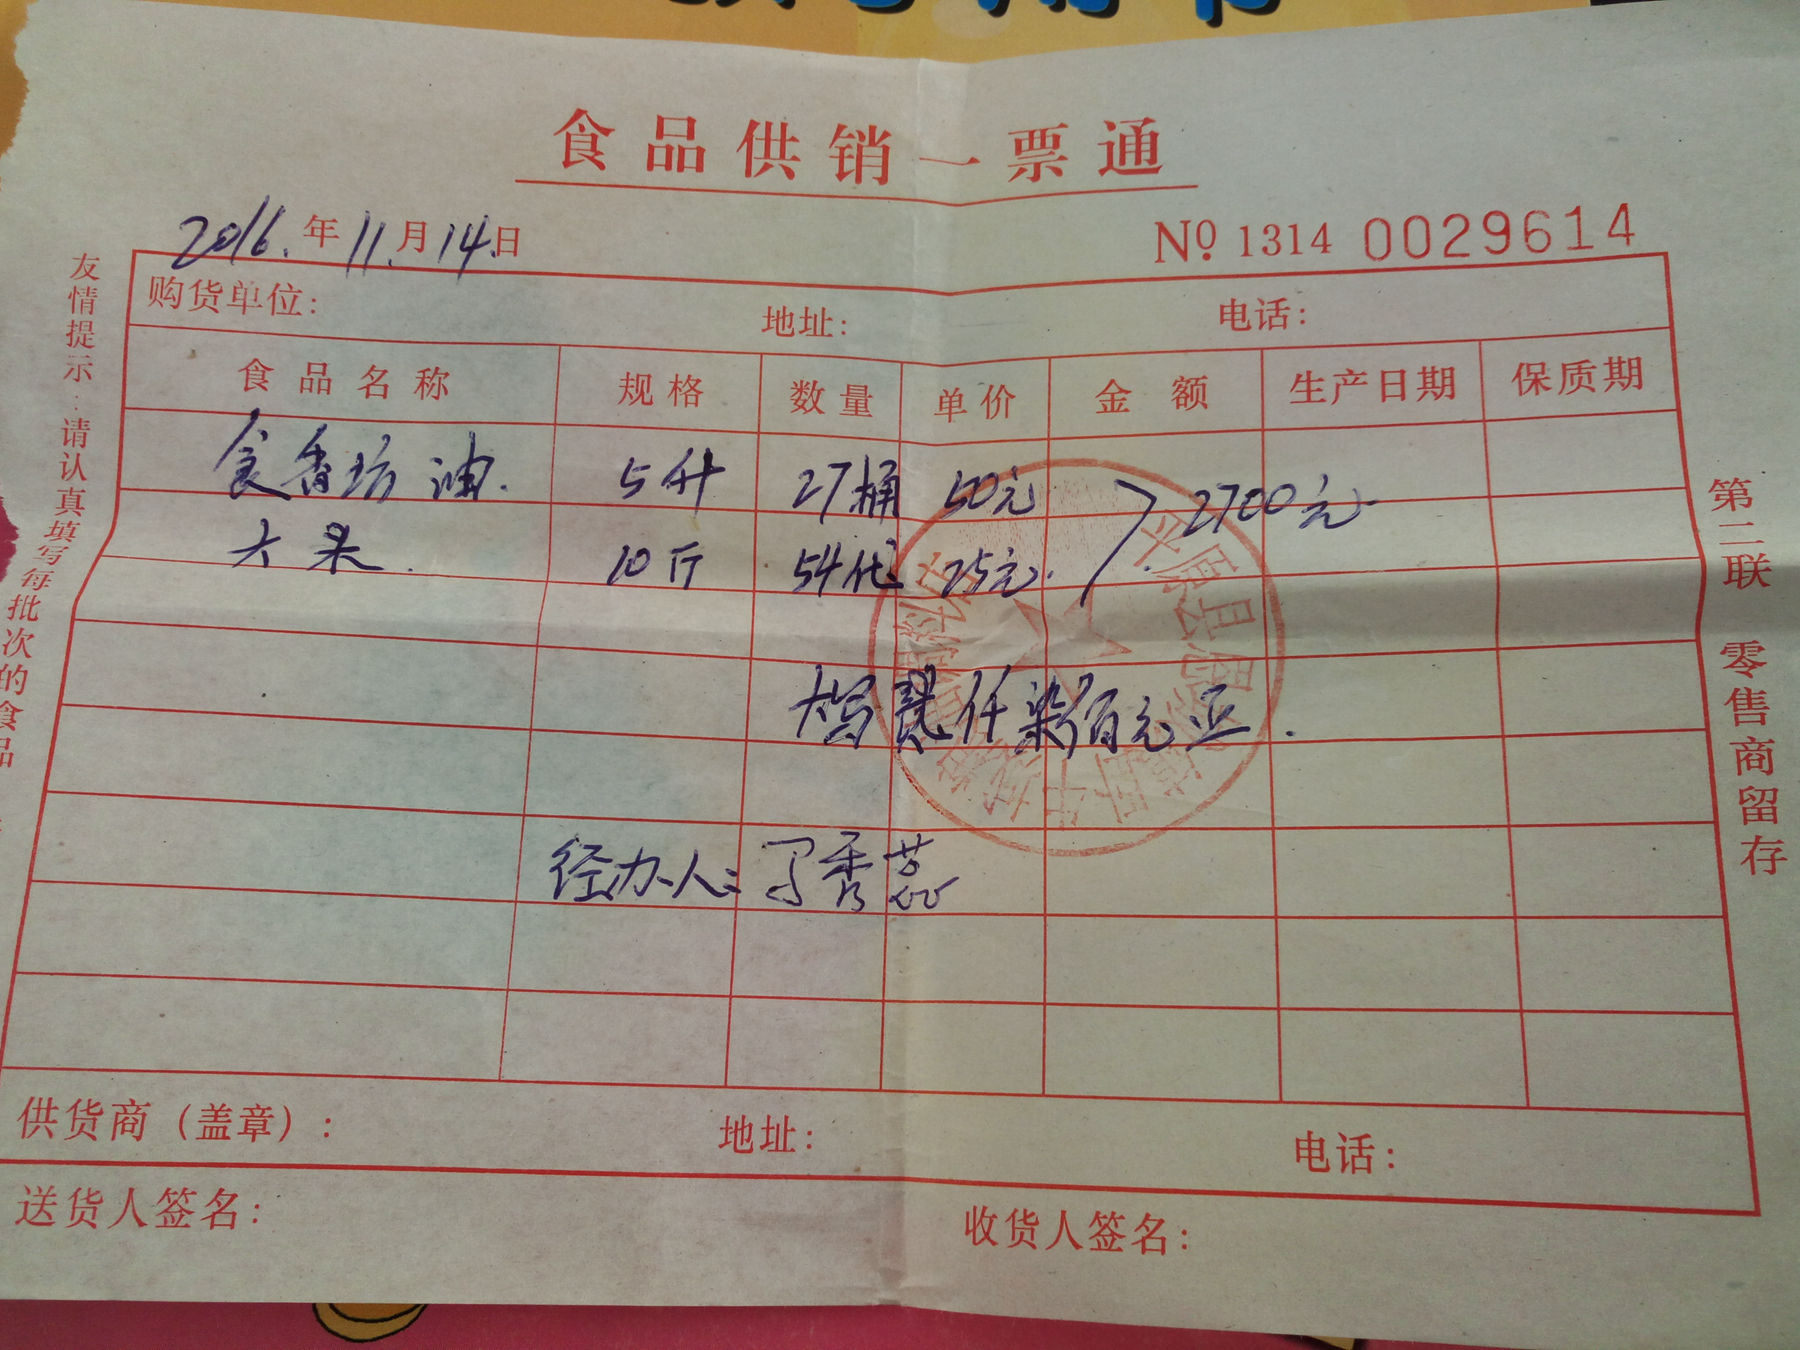 食品供销一票通
2016.年11.月14.日
No 1314 0029614
购货单位: 地址: 电话:
食品名称 规格 数量 单价 金额 生产日期 保质期
食香坊油. 5升 27桶 50元
2700元
大米. 10斤 54代 25元.
大写贰仟柒百元正.
经办人: 丁秀蕊
供货商(盖章): 地址: 电话:
送货人签名: 收货人签名:
友情提示:请认真填写每批次的食品
第二联 零售商留存